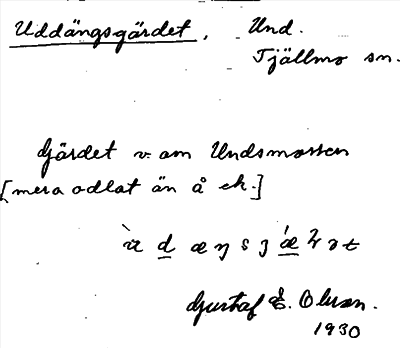 Uddängsgärdet, Und.
Tjällmo sn.
Gärdet v. om Undsmossen
[mera odlat än å ek.]
Gustaf E. Olsson.
1930